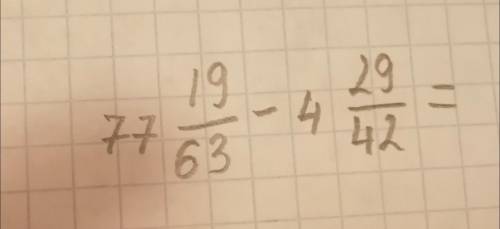 77 19/63 - 4 29/42 =